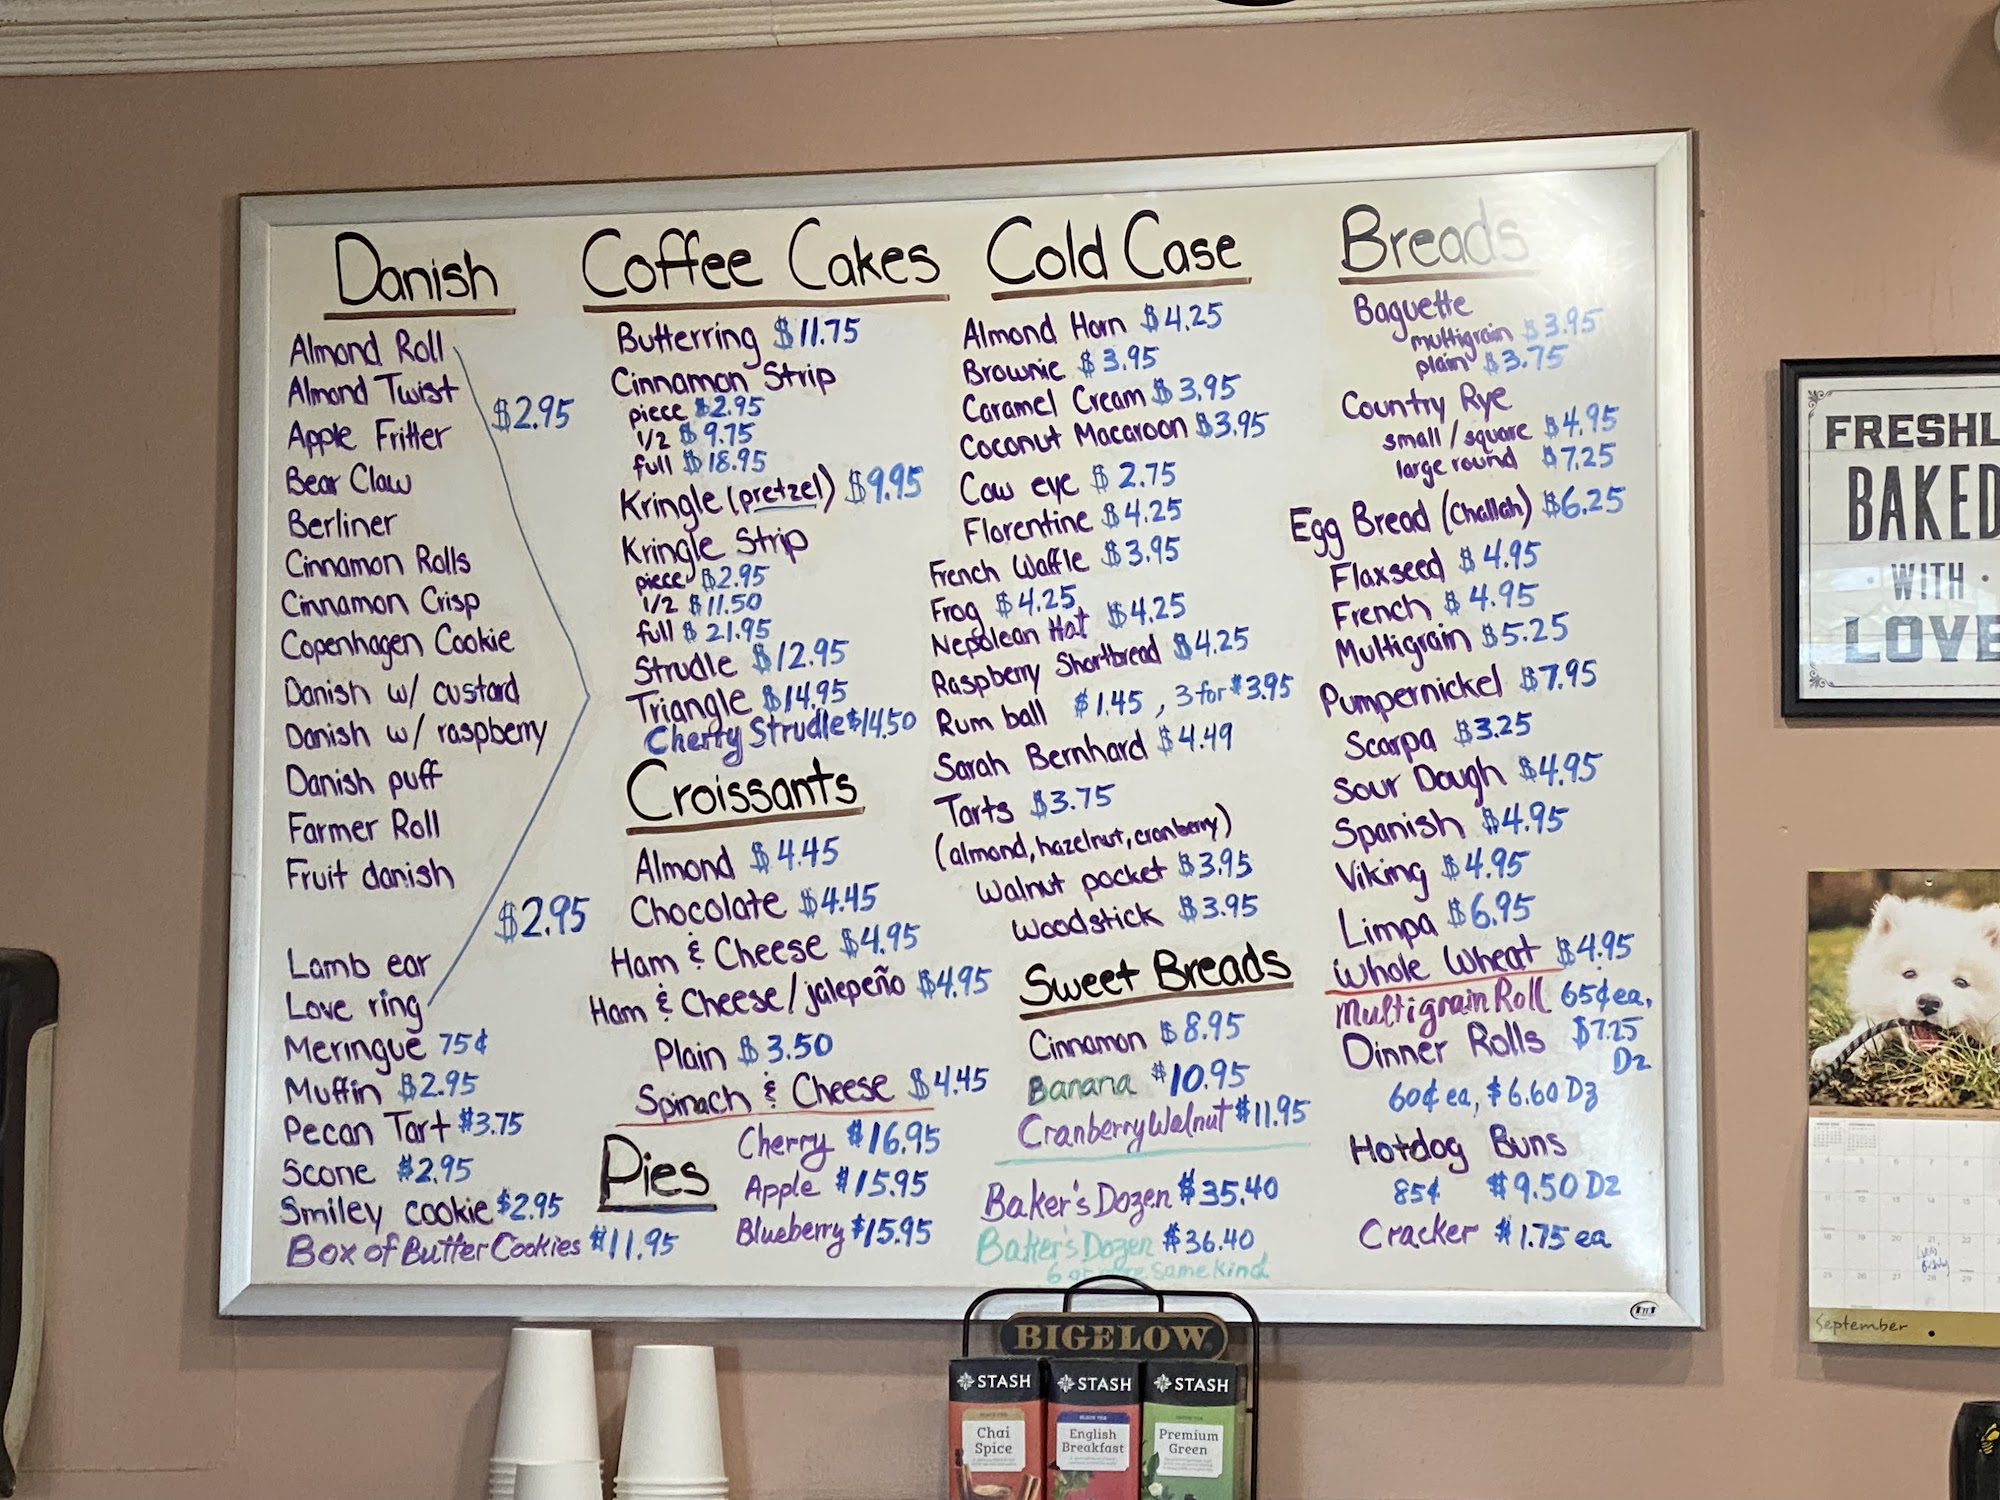 Danish
Almond Roll
Almond Twist
$2.95
Apple Fritter
Bear Claw
Berliner
Cinnamon Rolls
Cinnamon Crisp
Copenhagen Cookie
Danish w/ custard
Danish w/ raspberry
Danish puff
Farmer Roll
Fruit danish
$2.95
Lamb ear
Love ring
Meringue 75¢
Muffin $2.95
Pecan Tart $3.75
Scone $2.95
Smiley cookie $2.95
Box of Butter Cookies $11.95
Coffee Cakes
Butterring $11.75
Cinnamon Strip
piece $2.95
1/2 $9.75
full $18.95
Kringle (pretzel) $9.95
Kringle Strip
piece $2.95
1/2 $11.50
full $21.95
Strudle $12.95
Triangle $14.95
Cherry Strudle $14.50
Croissants
Almond $4.45
Chocolate $4.45
Ham & Cheese $4.95
Ham & Cheese/jalepeño $4.95
Plain $3.50
Spinach & Cheese $4.45
Pies
Cherry $16.95
Apple $15.95
Blueberry $15.95
Cold Case
Almond Horn $4.25
Brownie $3.95
Caramel Cream $3.95
Coconut Macaroon $3.95
Cow eye $2.75
Florentine $4.25
French Waffle $3.95
Frog $4.25
Nepolean Hat $4.25
Raspberry Shortbread $4.25
Rum ball $1.45, 3 for $3.95
Sarah Bernhard $4.49
Tarts $3.75
(almond, hazelnut, cranberry)
Walnut pocket $3.95
Woodstick $3.95
Sweet Breads
Cinnamon $8.95
Banana $10.95
Cranberry Walnut $11.95
Baker's Dozen $35.40
Baker's Dozen $36.40
6 or more same kind
Breads
Baguette
multigrain $3.95
plain $3.75
Country Rye
small/square $4.95
large round $7.25
Egg Bread (Challah) $6.25
Flaxseed $4.95
French $4.95
Multigrain $5.25
Pumpernickel $7.95
Scarpa $3.25
Sour Dough $4.95
Spanish $4.95
Viking $4.95
Limpa $6.95
Whole Wheat $4.95
Multigrain Roll 65¢ ea,
$7.25 Dz
Dinner Rolls
60¢ ea, $6.60 Dz
Hotdog Buns
85¢ $9.50 Dz
Cracker $1.75 ea
BAKED
· WITH ·
September
BIGELOW
STASH
Chai
Spice
STASH
English
Breakfast
STASH
Premium
Green